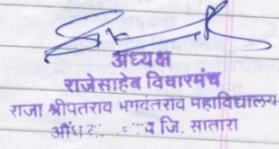 अध्यक्ष
राजेसाहेब विचारमंच
राजा श्रीपतराव भगवंतराव महाविद्यालय
औंध जि. सातारा